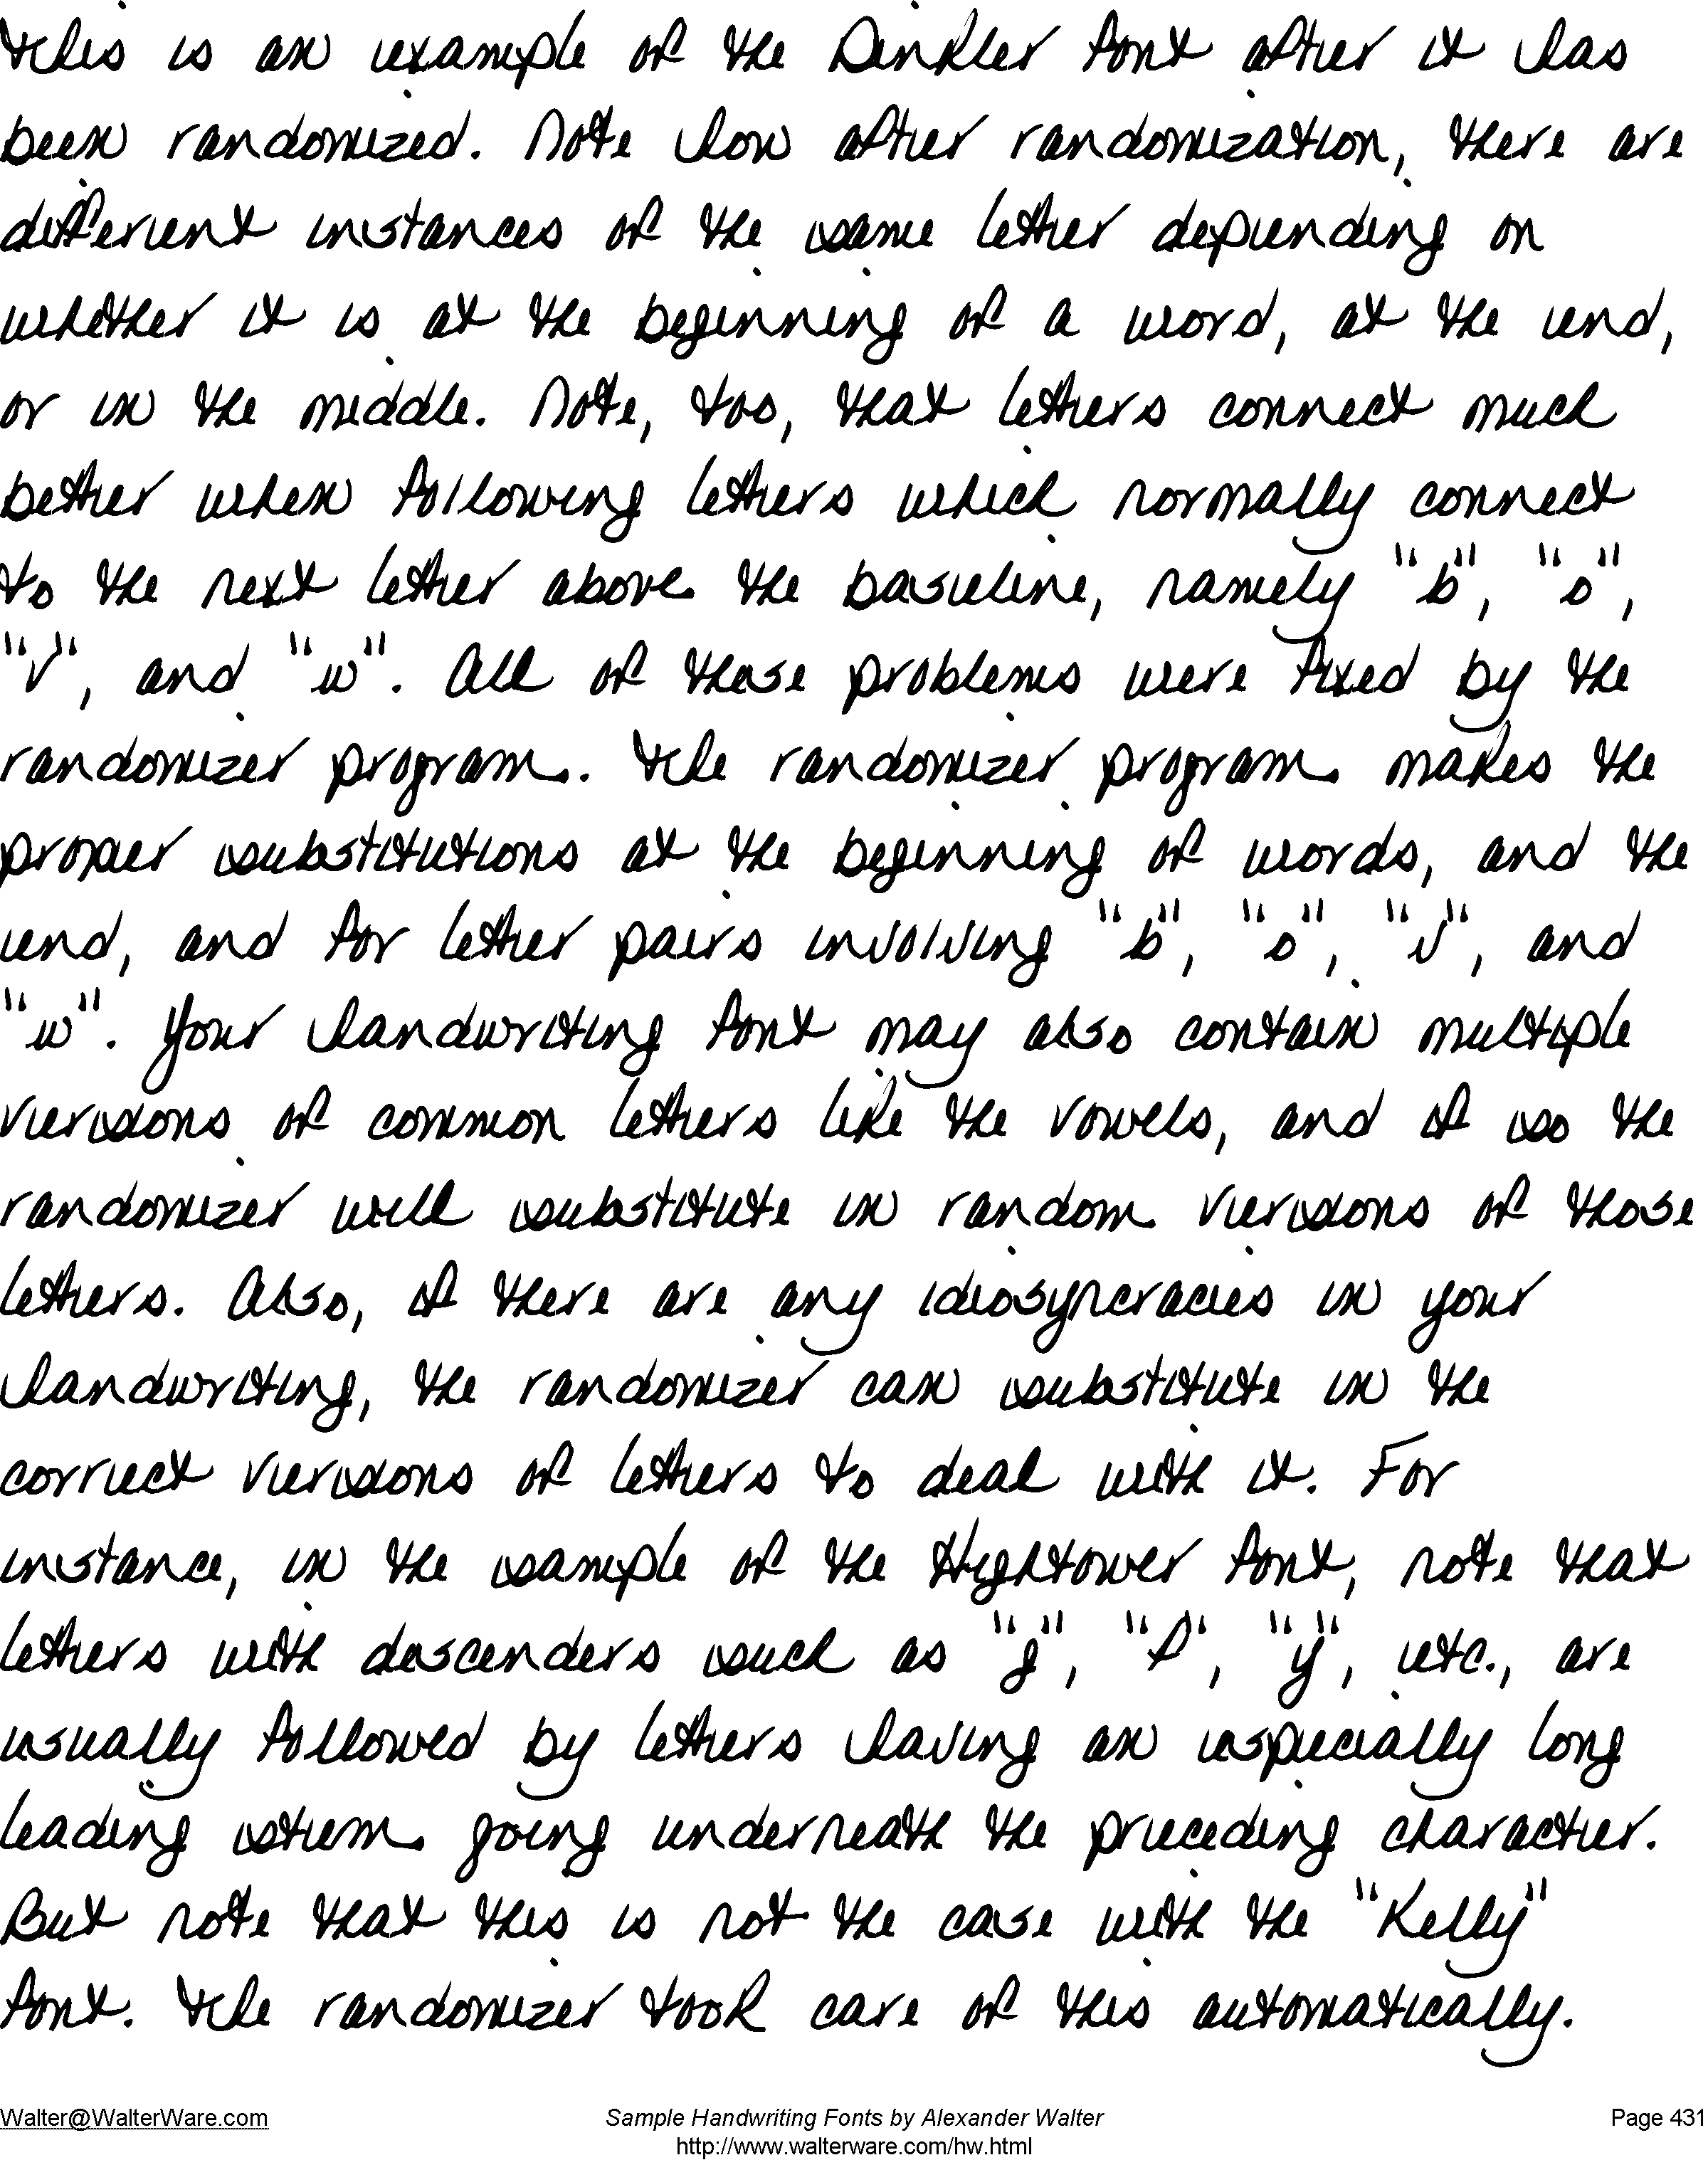 This is an example of the Dinkler font after it has
been randomized. Note how after randomization, there are
different instances of the same letter depending on
whether it is at the beginning of a word, at the end,
or in the middle. Note, too, that letters connect much
better when following letters which normally connect
to the next letter above the baseline, namely "b", "o",
"v", and "w". All of these problems were fixed by the
randomizer program. The randomizer program makes the
proper substitutions at the beginning of words, and the
end, and for letter pairs involving "b", "o", "v", and
"w". Your handwriting font may also contain multiple
versions of common letters like the vowels, and if so the
randomizer will substitute in random versions of those
letters. Also, if there are any idiosyncracies in your
handwriting, the randomizer can substitute in the
correct versions of letters to deal with it. For
instance, in the sample of the Hightower font, note that
letters with descenders such as "g", "f", "y", etc., are
usually followed by letters having an especially long
leading stem going underneath the preceding character.
But note that this is not the case with the "Kelly"
font. The randomizer took care of this automatically.
Walter@WalterWare.com Sample Handwriting Fonts by Alexander Walter Page 431
http://www.walterware.com/hw.html